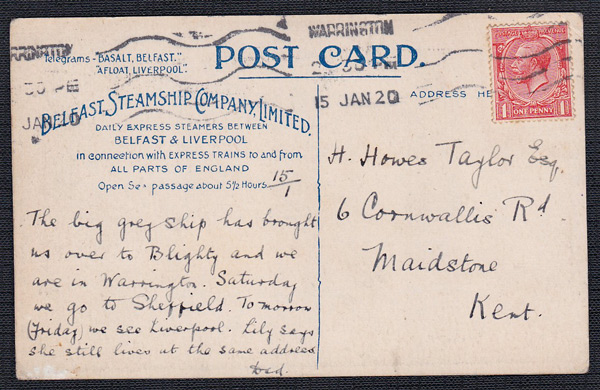 WARRINGTON
WARRINGTON
Telegrams - "BASALT, BELFAST."
"AFLOAT, LIVERPOOL".
POST CARD.
30 PM
JAN 20
15 JAN 20
ADDRESS HE
1 ONE PENNY 1
BELFAST STEAMSHIP COMPANY, LIMITED.
DAILY EXPRESS STEAMERS BETWEEN
BELFAST & LIVERPOOL
in connection with EXPRESS TRAINS to and from
ALL PARTS OF ENGLAND
Open Sea passage about 5½ Hours.
15/1
The big grey ship has brought
us over to Blighty and we
are in Warrington. Saturday
we go to Sheffield. Tomorrow
(Friday) we see Liverpool. Lily says
she still lives at the same address
Dad.
H. Howes Taylor Esq.
6 Cornwallis Rd.
Maidstone
Kent.